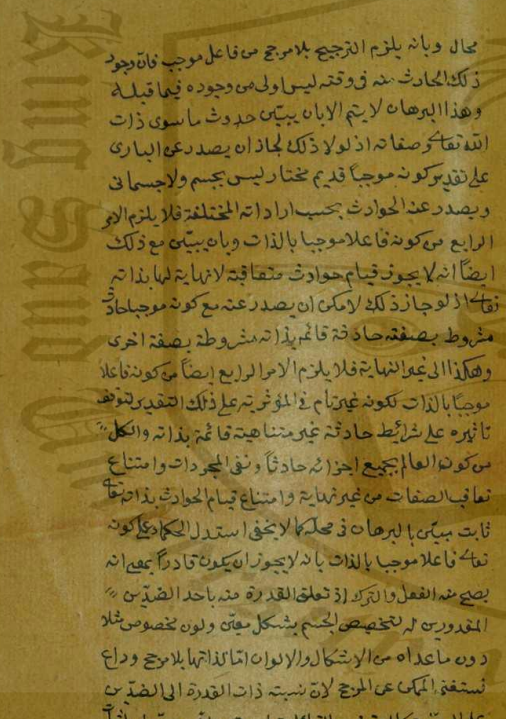 محال وبانه يلزم الترجيح بلا مرجح من فاعل موجب فان وجود
ذلك الحادث منه في وقته ليس اولى من وجوده فيما قبله
وهذا البرهان لا يتم الا بان يبين حدوث ما سوى ذات
الله تعالى وصفاته اذ لولا ذلك لجاز ان يصدر عن البارى
على تقدير كونه موجبا قديم مختار ليس بجسم ولا جسمانى
ويصدر عنه الحوادث بحسب اراداته المختلفة فلا يلزم الامر
الرابع من كونه فاعلا موجبا بالذات وبان يبين مع ذلك
ايضا انه لا يجوز قيام حوادث متعاقبة لا نهاية لها بذاته
تعالى اذ لو جاز ذلك لامكن ان يصدر عنه مع كونه موجبا حادث
مشروط بصفة حادثة قائمة بذاته مشروطة بصفة اخرى
وهكذا الى غير النهاية فلا يلزم الامر الرابع ايضا من كونه فاعلا
موجبا بالذات لكونه غير تام في المؤثرية على ذلك التقدير لتوقف
تاثيره على شرائط حادثة غير متناهية قائمة بذاته والكل
من كون العالم بجميع اجزائه حادثا ونفى المجردات وامتناع
تعاقب الصفات من غير نهاية وامتناع قيام الحوادث بذاته تعالى
ثابت مبين بالبرهان في محله كما لا يخفى استدل الحكماء على كونه
تعالى فاعلا موجبا بالذات بانه لا يجوز ان يكون قادرا بمعنى انه
يصح منه الفعل والترك اذ تعلق القدرة منه باحد الضدين
المقدورين له لتخصيص الجسم بشكل معين ولون مخصوص مثلا
دون ما عداه من الاشكال والالوان اما لذاتها بلا مرجح وداع
فيستغنى الممكن عن المرجح لان نسبة ذات القدرة الى الضدين
King Saud